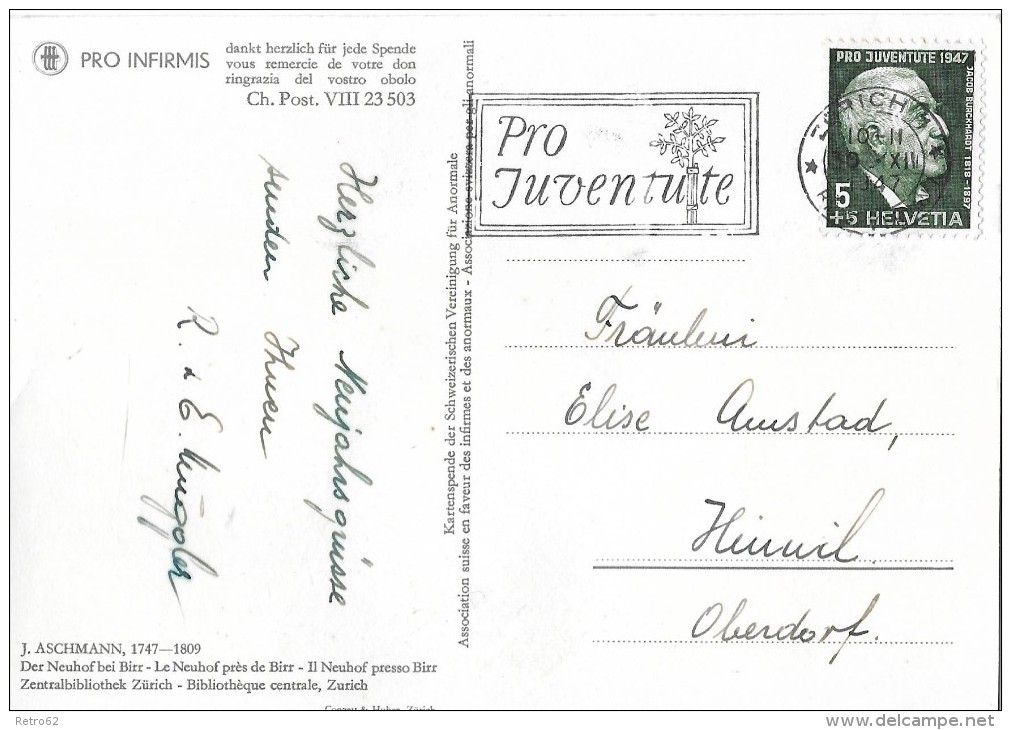 PRO INFIRMIS
dankt herzlich für jede Spende
vous remercie de votre don
ringrazia del vostro obolo
Ch. Post. VIII 23 503
Herzliche Neujahrsgrüsse
senden Ihnen
R. & E. Müggler
J. ASCHMANN, 1747—1809
Der Neuhof bei Birr - Le Neuhof près de Birr - Il Neuhof presso Birr
Zentralbibliothek Zürich - Bibliothèque centrale, Zurich
Conzett & Huber, Zürich
Kartenspende der Schweizerischen Vereinigung für Anormale
Association suisse en faveur des infirmes et des anormaux - Associazione svizzera per gli anormali
Pro
Juventute
ZÜRICH
10-11
XII
1947
PRO JUVENTUTE 1947
JACOB BURCKHARDT 1818-1897
5
+5 HELVETIA
Fräulein
Elise Amstad,
Hinwil
Oberdorf.
Retro62
delcampe.net